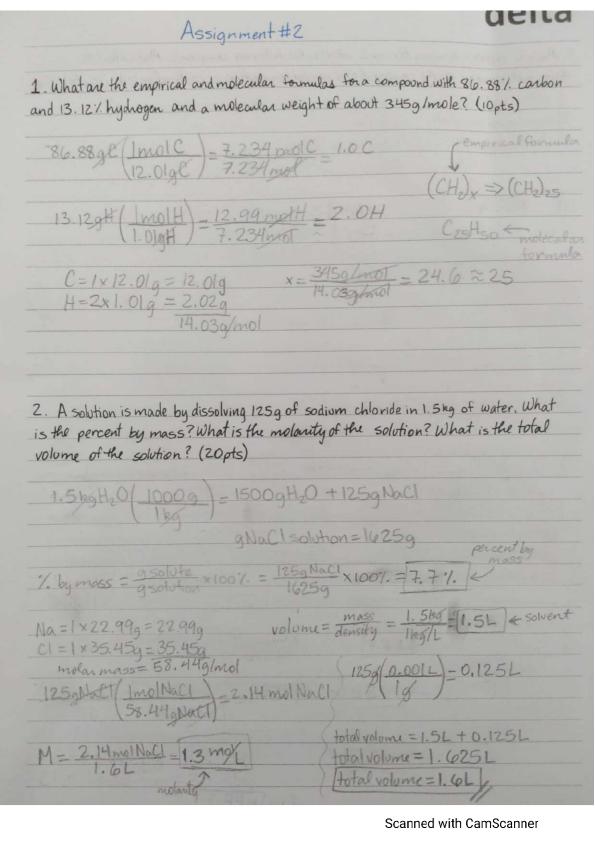 delta
Assignment #2
1. What are the empirical and molecular formulas for a compound with 86.88% carbon
and 13.12% hydrogen and a molecular weight of about 345g/mole? (10pts)
86.88gC (1molC / 12.01gC) = 7.234molC / 7.234mol = 1.0 C
empirical formula
(CH₂)x ⇒ (CH₂)25
13.12gH (1molH / 1.01gH) = 12.99molH / 7.234mol = 2.0H
C25H50 ← molecular
formula
C = 1 x 12.01g = 12.01g
H = 2 x 1.01g = 2.02g
14.03g/mol
x = 345g/mol / 14.03g/mol = 24.6 ≈ 25
2. A solution is made by dissolving 125g of sodium chloride in 1.5kg of water. What
is the percent by mass? What is the molarity of the solution? What is the total
volume of the solution? (20pts)
1.5kgH₂O (1000g / 1kg) = 1500gH₂O + 125gNaCl
gNaCl solution = 1625g
% by mass = g solute / g solution x 100% = 125gNaCl / 1625g x 100% = 7.7%
percent by
mass
Na = 1 x 22.99g = 22.99g
Cl = 1 x 35.45g = 35.45g
molar mass = 58.44g/mol
volume = mass / density = 1.5kg / 1kg/L = 1.5L ← solvent
125gNaCl (1molNaCl / 58.44gNaCl) = 2.14molNaCl
125g (0.001L / 1g) = 0.125L
M = 2.14molNaCl / 1.6L = 1.3 mol/L
molarity
total volume = 1.5L + 0.125L
total volume = 1.625L
total volume = 1.6L
Scanned with CamScanner